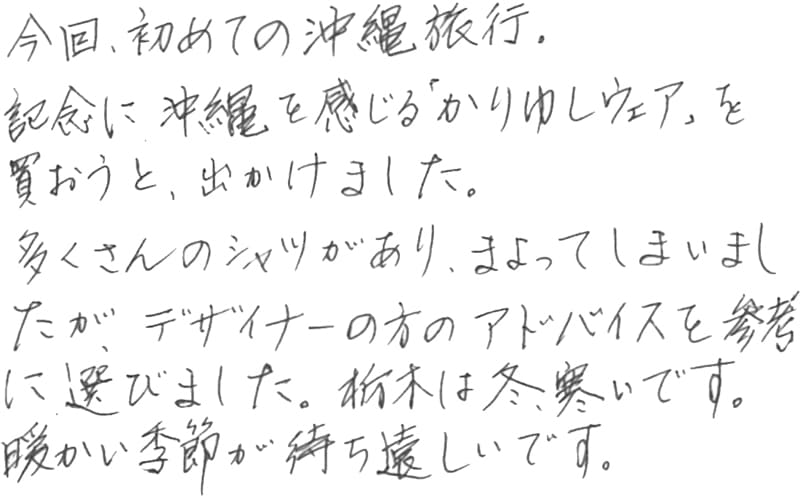 今回、初めての沖縄旅行。
記念に沖縄を感じる「かりゆしウェア」を
買おうと、出かけました。
多くさんのシャツがあり、まよってしまいまし
たが、デザイナーの方のアドバイスを参考
に選びました。栃木は冬、寒いです。
暖かい季節が待ち遠しいです。